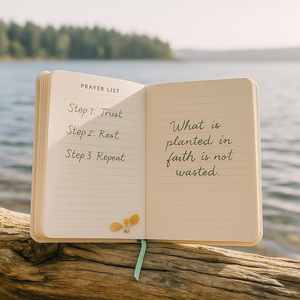 PRAYER LIST
Step 1: Trust
Step 2: Rest
Step 3 Repeat
What is
planted in
faith is not
wasted.